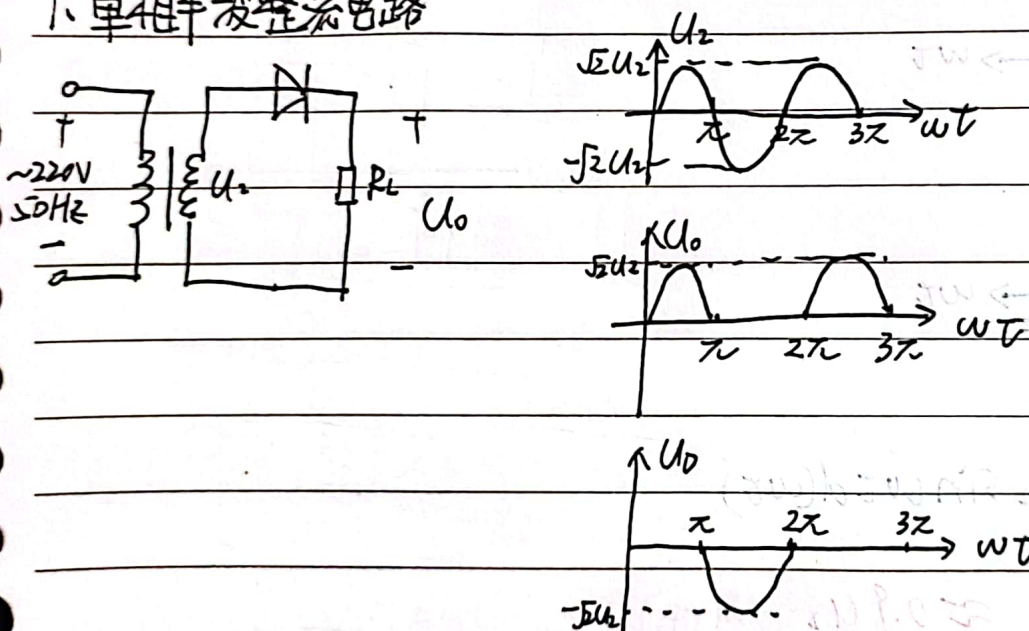 1、单相半波整流电路
+
~220V
50HZ
−
U₂
RL
+
U₀
−
U₂
√2U₂
π 2π 3π ωt
-√2U₂
U₀
√2U₂
π 2π 3π ωt
U_D
π 2π 3π ωt
-√2U₂